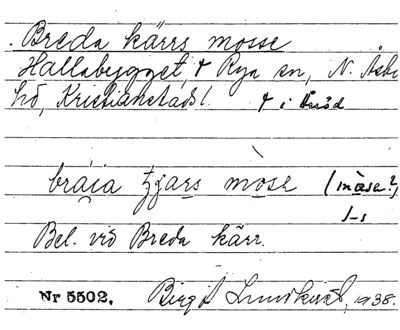 Breda kärrs mosse
Hallabygget, Rya sn, N. Åsbo
hd, Kristianstads l.
bràia tjars mòse (mòse?)
s-s
Bel. vid Breda kärr.
Nr 5502. Birgit Lundkvist, 1938.